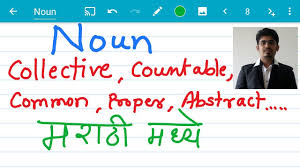 Noun
8
Noun
Collective, Countable,
Common, Proper, Abstract.....
मराठी मध्ये